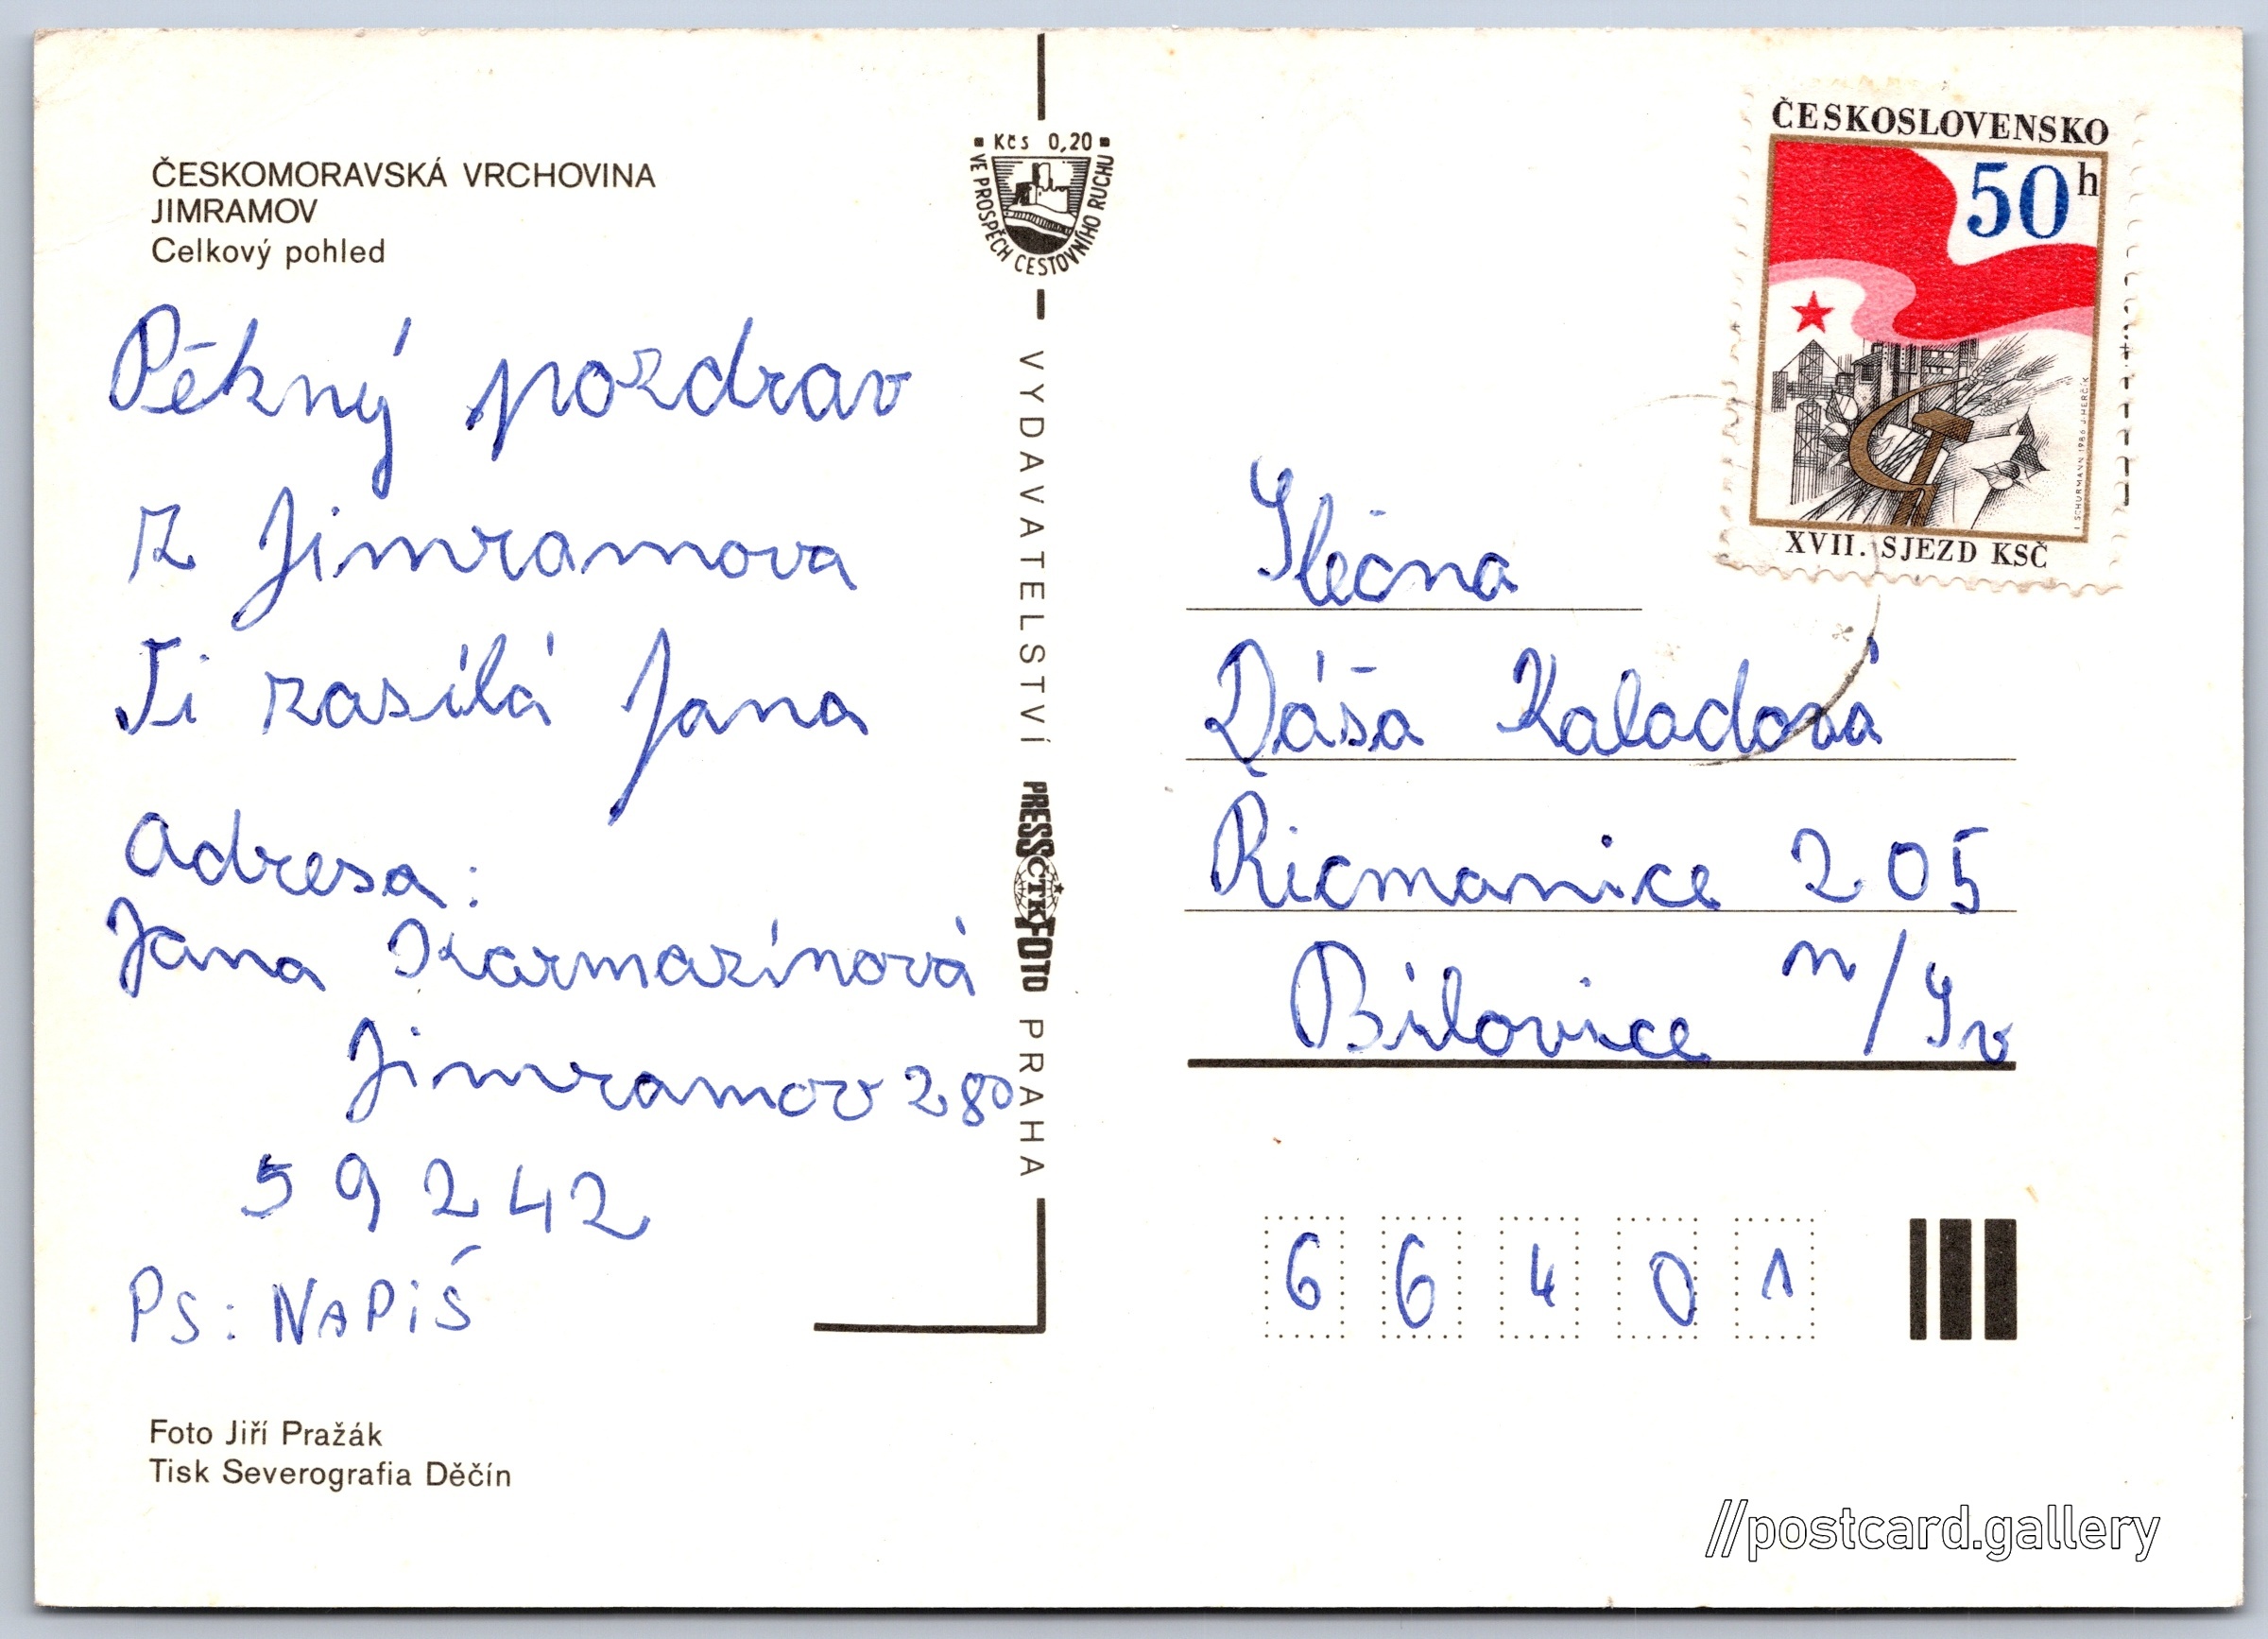 ČESKOMORAVSKÁ VRCHOVINA
JIMRAMOV
Celkový pohled
Pěkný pozdrav
z Jimramova
Ti zasílá Jana
Adresa:
Jana Karmazínová
Jimramov 280
59242
PS: NAPIŠ
Foto Jiří Pražák
Tisk Severografia Děčín
Kčs 0,20
VE PROSPĚCH CESTOVNÍHO RUCHU
VYDAVATELSTVÍ PRESSFOTO PRAHA
ČTK
ČESKOSLOVENSKO
50h
I. SCHURMANN 1986 J. HERČÍK
XVII. SJEZD KSČ
Slečna
Dáša Kaladová
Ricmanice 205
Bílovice n/Sv
66401
//postcard.gallery